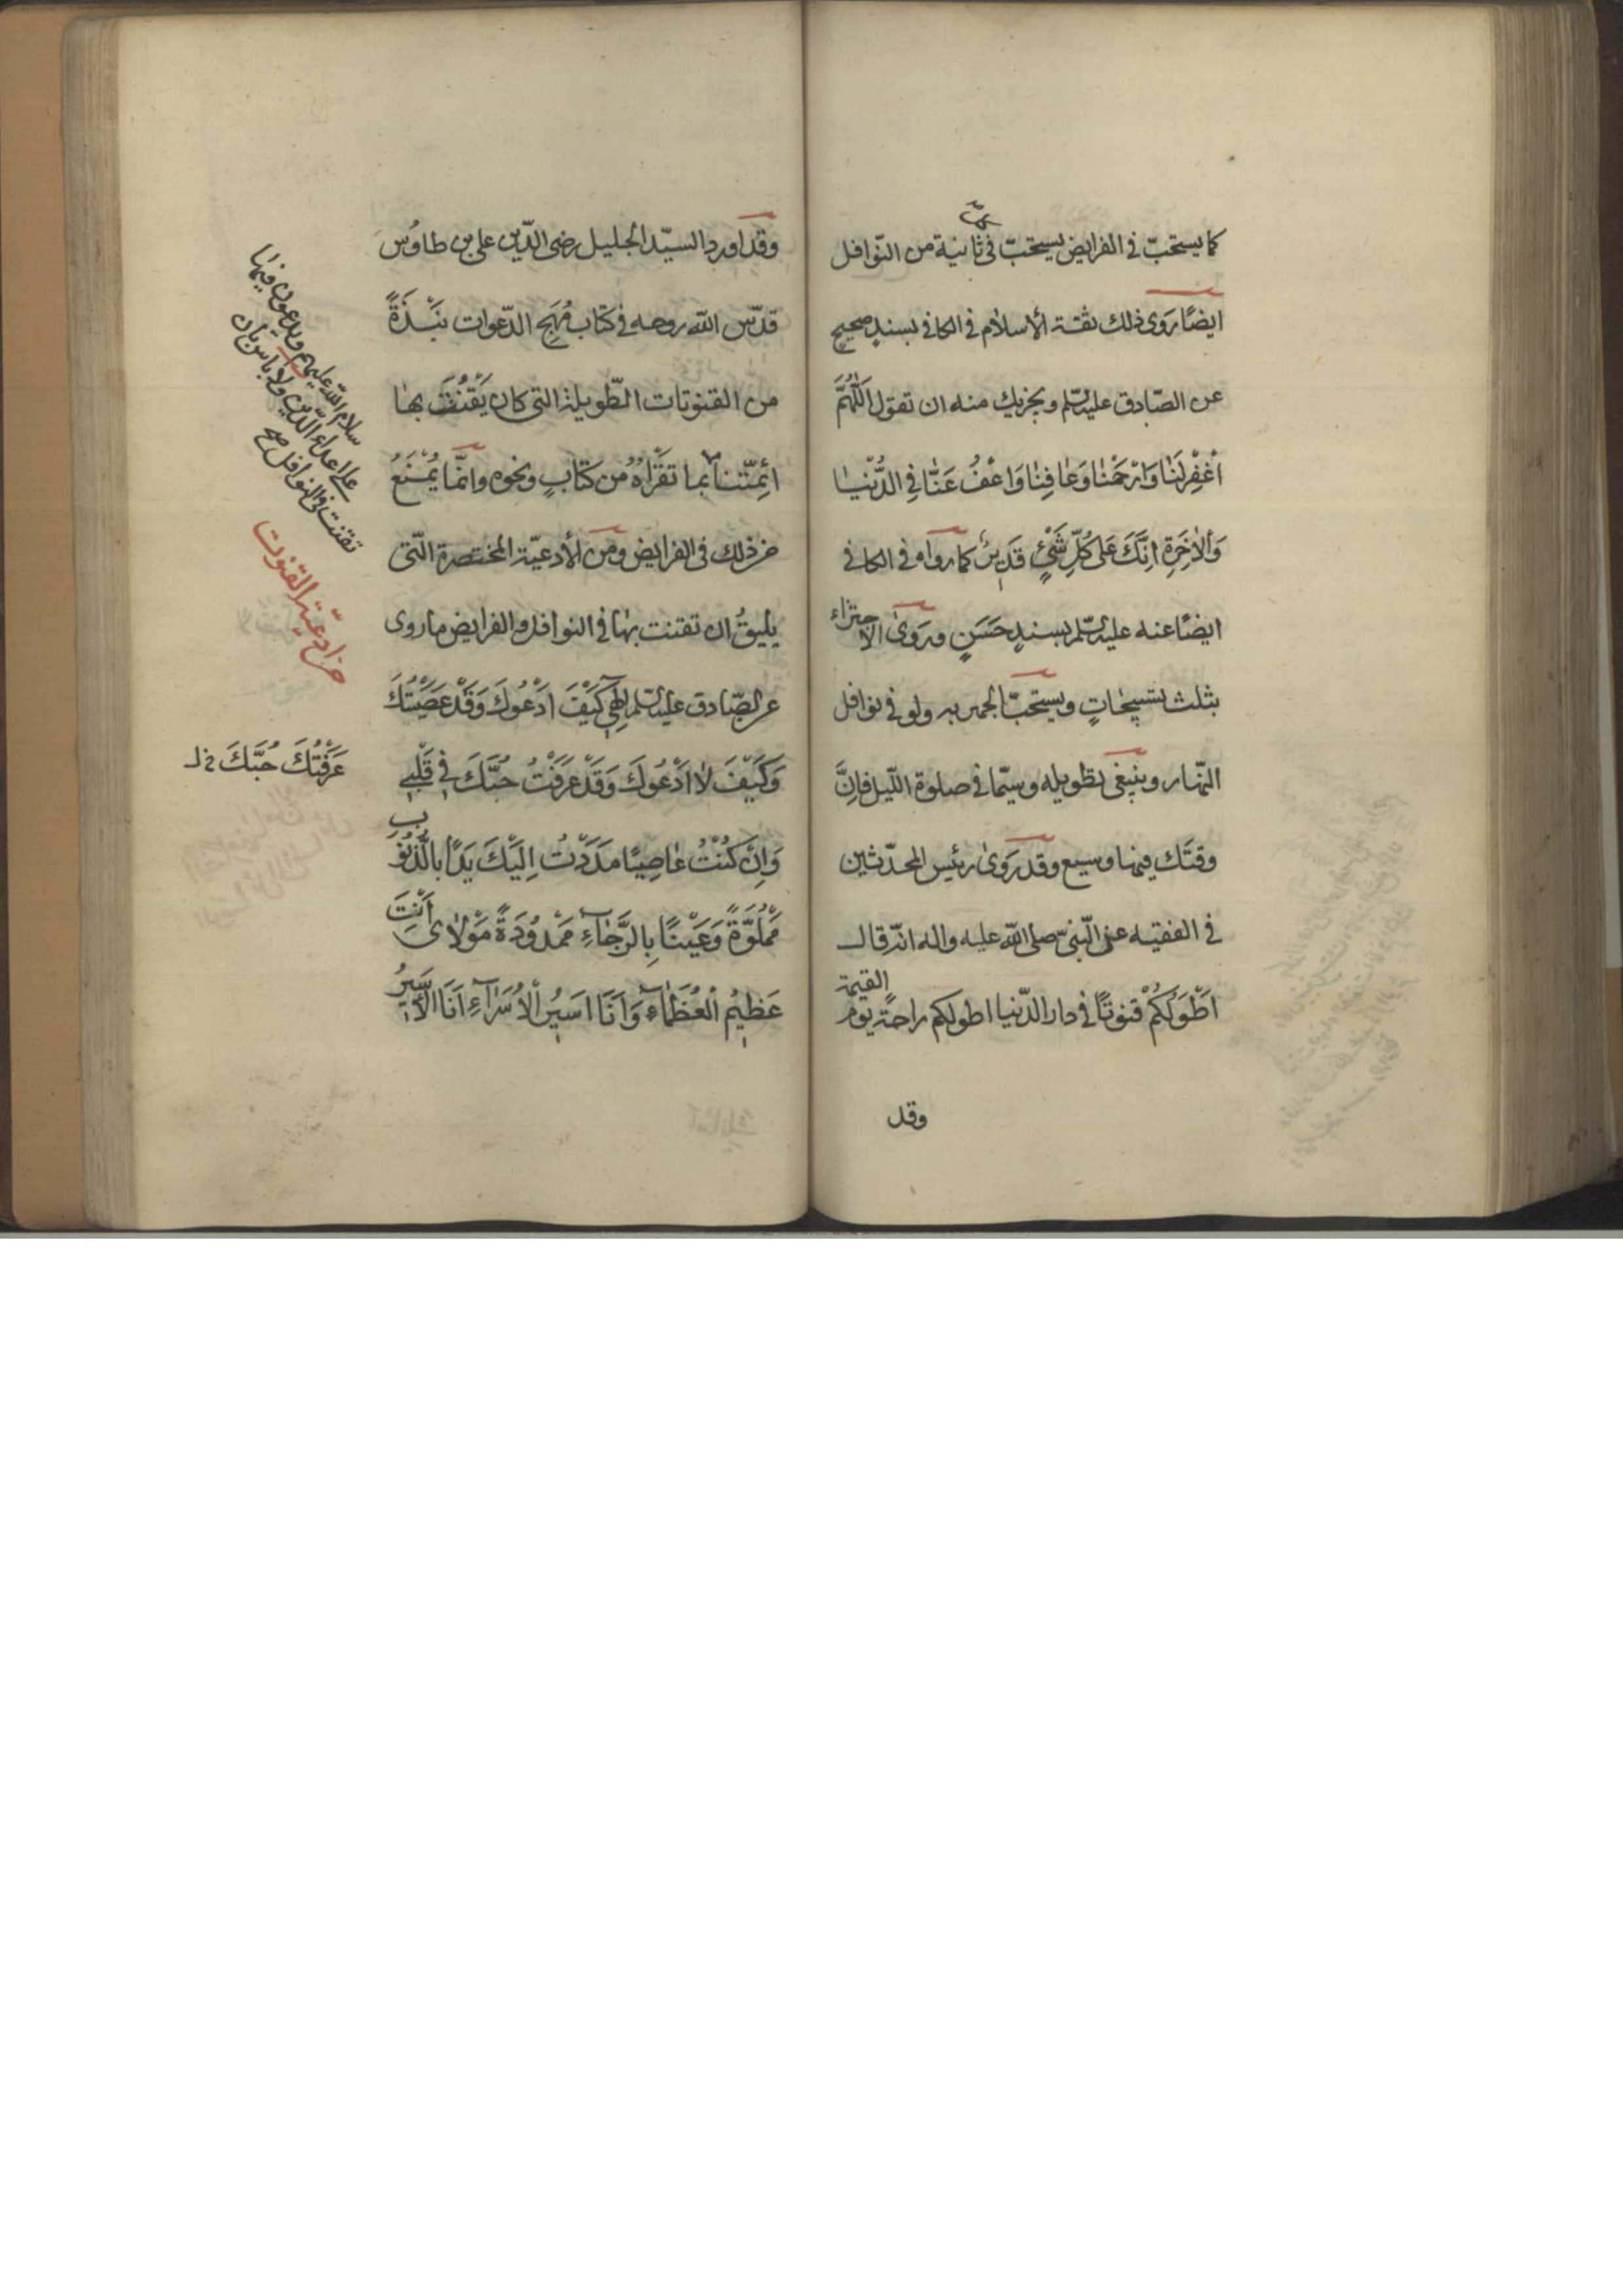 كلّ
كما يستحبّ فى الفرايض يستحبّ فى ثانية من النّوافل
ايضًا رَوى ذلك ثقة الأسلام فى الكافى بسندٍ صحيحٍ
عن الصّادق عليه السّلم ويجزيك منه ان تقول اَللّٰهُمَّ
اغْفِرْ لَنٰا وَارْحَمْنٰا وَعٰافِنٰا وَاعْفُ عَنّٰا فِى الدُّنْيٰا
وَالْاٰخِرَةِ اِنَّكَ عَلىٰ كُلِّ شَىْءٍ قَدِيرٌ كما رواه فى الكافى
ايضًا عنه عليه السّلم بسندٍ حَسَنٍ وروىٰ الاجتزاء
بثلث تسبيحٰاتٍ ويستحبّ الجهر به ولو فى نوافل
النّهار وينبغى تطويله وسيّما فى صلوة اللّيل فاِنَّ
وقتَك فيها وسيع وقد رَوىٰ رئيس المحدّثين
فى الفقيه عن النّبىّ صلى اللّه عليه واله انّه قال
اَطْوَلُكُمْ قنوتًا فى دار الدّنيا اطولكم راحةً يوم القيمة
وقد
وقد اورد السيّد الجليل رضى الدّين على بن طاوُس
قدّس اللّه روحه فى كتاب مُهَجِ الدّعوات نَبْذَةً
من القنوتات الطّويلة التى كان يَقْنُتُ بهٰا
ائِمّتنا بما تقرَاهُ من كتابٍ ونحوه وانّما يُمْنَعُ
من ذلك فى الفرايض ومن الأدعيّة المختصرة الّتى
يليقُ ان تقنت بهٰا فى النوافل والفرايض ما روى
عن الصّادق عليه السّلم اِلٰهِى كَيْفَ اَدْعُوكَ وَقَدْ عَصَيْتُكَ
وَكَيْفَ لاٰ اَدْعُوكَ وَقَدْ عَرَفْتُ حُبَّكَ فِى قَلْبِى
وَاِنْ كُنْتُ عٰاصِيًا مَدَدْتُ اِلَيْكَ يَدًا بِالذُّنُوبِ
مَمْلُوَّةً وَعَيْنًا بِالرَّجٰاءِ مَمْدُودَةً مَوْلاٰى اَنْتَ
عَظِيمُ الْعُظَمٰاءِ وَاَنَا اَسِيرُ الْاُسَرٰاءِ اَنَا الْاَسِيرُ
سلام اللّه عليهم ويدعون فيها
على اعداء الدّين ولا باس بان
تقنت فى النوافل صح
من ادعيّة القنوت
عَرَفْتُكَ حُبَّكَ خ ل